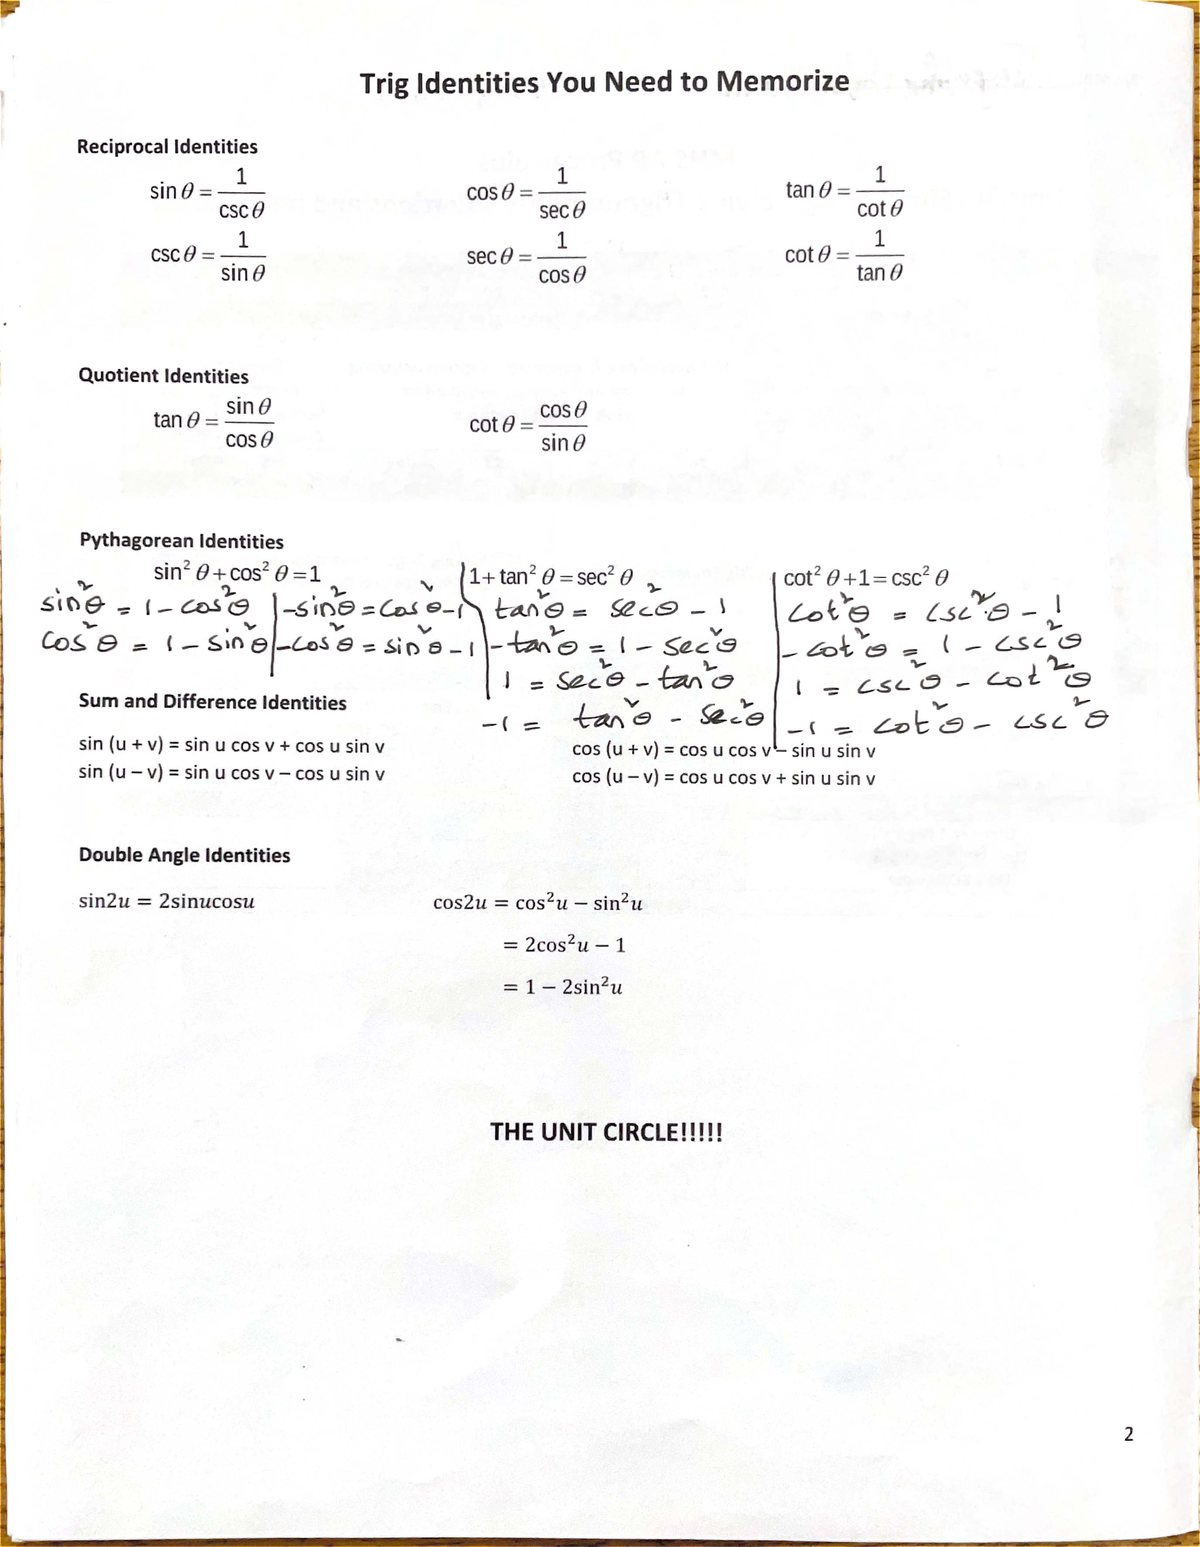 Trig Identities You Need to Memorize
Reciprocal Identities
sin θ = 1/csc θ    cos θ = 1/sec θ    tan θ = 1/cot θ
csc θ = 1/sin θ    sec θ = 1/cos θ    cot θ = 1/tan θ
Quotient Identities
tan θ = sin θ/cos θ    cot θ = cos θ/sin θ
Pythagorean Identities
sin² θ+cos² θ =1    1+ tan² θ = sec² θ    cot² θ +1= csc² θ
sin²θ = 1 - cos²θ | -sin²θ = cos²θ - 1    tan²θ = sec²θ - 1    cot²θ = csc²θ - 1
cos²θ = 1 - sin²θ | -cos²θ = sin²θ - 1    -tan²θ = 1 - sec²θ    - cot²θ = 1 - csc²θ
1 = sec²θ - tan²θ    1 = csc²θ - cot²θ
-1 = tan²θ - sec²θ    -1 = cot²θ - csc²θ
Sum and Difference Identities
sin (u + v) = sin u cos v + cos u sin v    cos (u + v) = cos u cos v – sin u sin v
sin (u – v) = sin u cos v – cos u sin v    cos (u – v) = cos u cos v + sin u sin v
Double Angle Identities
sin2u = 2sinucosu    cos2u = cos²u − sin²u
= 2cos²u − 1
= 1 − 2sin²u
THE UNIT CIRCLE!!!!!
2